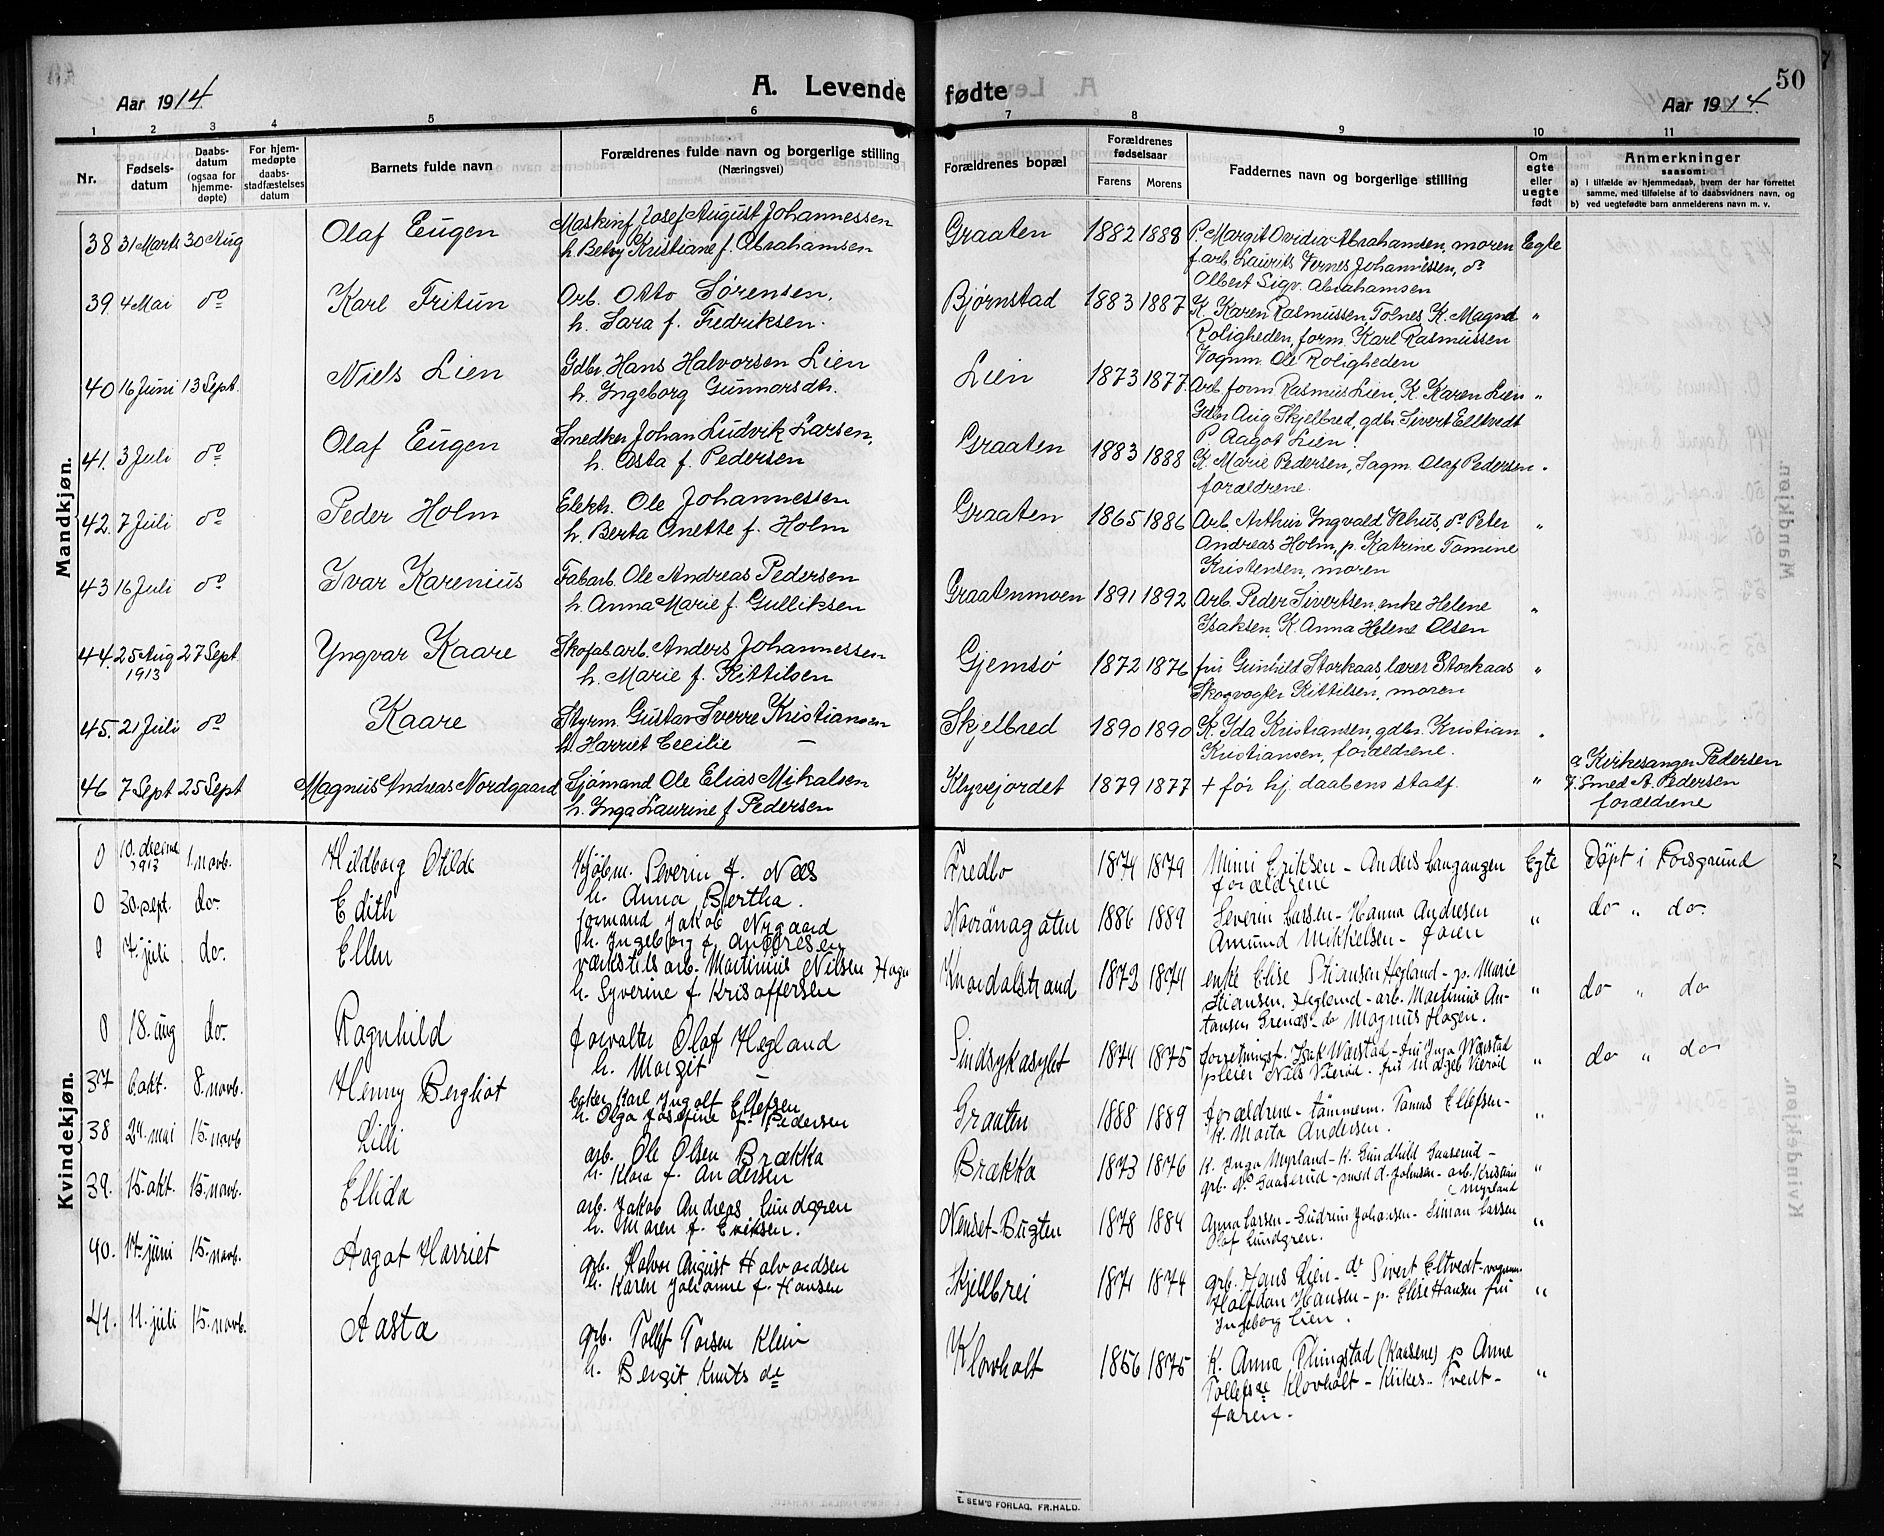 Aar 1914
A. Levende fødte
Aar 1914
50
1 2 3 4 5 6 7 8 9 10 11
Nr.
Fødsels-datum
Daabs-datum (ogsaa for hjemme-døpte)
For hjem-medøpte daabs-stadfæstelses datum
Barnets fulde navn
Forældrenes fulde navn og borgerlige stilling
(Næringsvei)
Forældrenes bopæl
Forældrenes fødselsaar
Farens Morens
Faddernes navn og borgerlige stilling
Om egte eller uegte født
Anmerkninger
saasom:
a) i tilfælde av hjemmedaab, hvem der har forrettet samme, med tilføielse af to daabsvidners navn, og
b) ved uegtefødte barn anmelderens navn m. v.
Mandkjøn.
38 31 Marts 30 Aug Olaf Eugen Maskinf. Josef August Johannessen Graaten 1882 1888 P. Margit Ovidia Abrahamsen, moren Egte
h. Betsy Kristiane f. Abrahamsen f. arb. Laurits Vernes Johannessen, do
Albert Sigv. Abrahamsen
39 4 Mai do Karl Fritun Arb. Otto Sørensen, Bjørnstad 1883 1887 K. Karen Rasmussen Tolnes, K. Magnd "
h. Sara f. Fredriksen. Roligheden, form. Karl Rasmussen
Vognm. Ole Roligheden
40 16 Juni 13 Sept. Niels Lien Gdbr. Hans Halvorsen Lien Lien 1873 1877 Arb. form. Rasmus Lien, K. Karen Lien "
h. Ingeborg Gunnarsdtr. Gdbr Aug Skjelbred, gdbr. Sivert Eltvedt
P. Aagot Lien.
41. 3 Juli do Olaf Eugen Snedker Johan Ludvik Larsen, Graaten 1883 1888 K. Marie Pedersen, Sagm. Olaf Pedersen "
h. Asta f. Pedersen forældrene.
42. 7 Juli do Peder Holm Elekh. Ole Johannessen Graaten 1865 1886 Arb. Arthur Ingvald Vehus, do Peter "
h. Berta Anette f. Holm Andreas Holm, p. Katrine Tomine
Kristensen, moren
43 16 Juli do Ivar Karenius Fabarb. Ole Andreas Pedersen Graatenmoen 1891 1892 Arb. Peder Sivertsen, enke Helene "
h. Anna Marie f. Gulliksen Isaksen, K. Anna Helene Olsen
44. 25 Aug 1913 27 Sept Yngvar Kaare Skofabarb. Anders Johannessen Gjemsø 1872 1876 fru Gunhild Storkaas, lærer Storkaas "
h. Marie f. Kittilsen Skogvogter Kittilsen, moren
45. 21 Juli do Kaare Styrm. Gustav Sverre Kristiansen Skjelbred 1890 1890 K. Ida Kristiansen, gdbr. Kristian "
h. Harriet Cecilie — Kristiansen, forældrene.
46 7 Sept 25 Sept Magnus Andreas Nordgaard Sjømand Ole Elias Mikalsen Klyvejordet 1879 1877 + før hj. daabens stadf. " a Kirkesanger Pedersen
h. Inga Laurine f. Pedersen Smed A. Pedersen
forældrene
Kvindekjøn.
0 10. decme 1913 1. novb. Hildborg Otilde Kjøbm. Severin J. Næs Fredbo 1874 1879 Mimi Eriksen - Anders Langangen Egte Døpt i Porsgrund
h. Anna Bertha. forældrene
0 30. sept. do. Edith formand Jakob Nygaard Norönagaten 1886 1889 Severin Larsen - Hanna Andresen " do " do.
h. Ingeborg f. Andresen Amund Mikkelsen - faren
0 7. juli do. Ellen værkstils arb. Martinius Nilsen Hagen Knardalstrand 1872 1874 enke Elise Stiansen Hegland - p. Marie " do " do
h. Syverine f. Kristoffersen Stiansen. Heglund - arb. Martinius An-
tonsen Grenæs - do Magnus Hagen.
0 18. aug do. Ragnhild forvalter Olaf Hegland Sindsykasylet 1874 1875 forretningsf. Isak Warstad - fru Inga Warstad " do " do
h. Margit — pleier Nils Vierød. fru Margit Vierød
37 6. okt. 8. novb. Henny Bergliot baker Karl Ingolf Ellefsen Graaten 1888 1889 forældrene - tømmerm. Tomas Ellefsen - "
h. Olga Josefine f. Pedersen k. Marta Andersen.
38 24. mai 15. novb Lilli arb. Ole Olsen Brækka Brækka 1873 1876 K. Inga Myrland - K. Gundhild Saaserud - "
h. Klara f. Andersen grb. N. Saaserud - smed A. Johnsen - arb. Kristian Myrland
39. 15. okt. 15. novb. Ellida arb. Jakob Andreas Lundgren Nenset-Bugten 1878 1884 Anna Larsen - Gudrun Johansen - Simon Larsen "
h. Maren f. Eriksen. Olaf Lundgren.
40. 17. juni 15. novb. Aagot Harriet grb. Halvor August Halvordsen Skjelbrei 1874 1874 grb. Hans Lien - do Sivert Eltvedt - vognm. "
h. Karen Johanne f. Hansen Halfdan Hansen - p. Elise Hansen fru
Ingeborg Lien.
41. 11. juli 15. novb. Aasta grb. Tollef Torsen Kleiv Klovholt 1856 1875 K. Anna Thingstad (Kaasene) p Anne "
h. Bergit Knuts de Tollefsde Klovholt - Kirkes - Tvedt -
faren -
E. SEM'S FORLAG, FR.HALD.